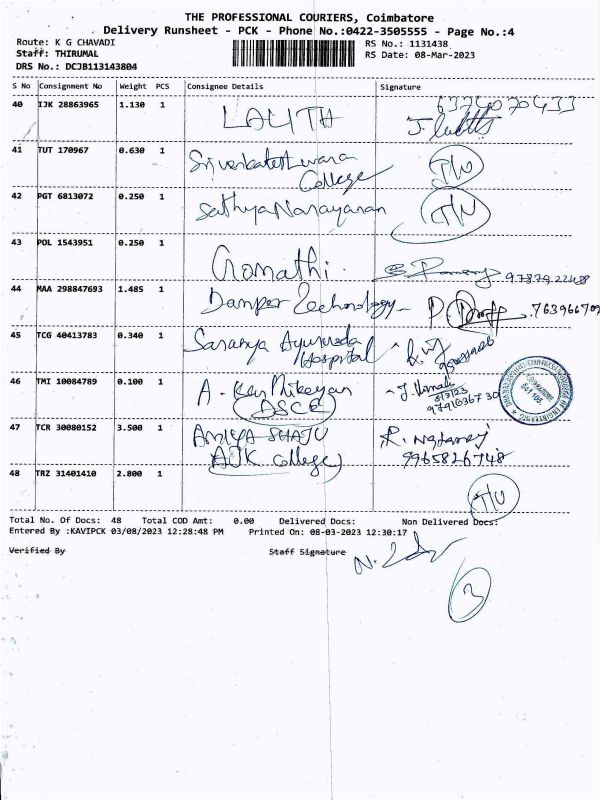 THE PROFESSIONAL COURIERS, Coimbatore
Delivery Runsheet - PCK - Phone No.:0422-3505555 - Page No.:4
Route: K G CHAVADI
RS No.: 1131438
Staff: THIRUMAL
RS Date: 08-Mar-2023
DRS No.: DCJB113143804
S No Consignment No Weight PCS Consignee Details Signature
40 IJK 28863965 1.130 1 LALITH 6374070433
41 TUT 170967 0.630 1 Sri venkateshwara
College T/U
42 PGT 6813072 0.250 1 Sathya Narayanan T/U
43 POL 1543951 0.250 1 Gomathi.
44 MAA 298847693 1.485 1 Damper Technology
45 TCG 40413783 0.340 1 Saranya Ayurveda
Hospital
46 TMI 10084789 0.100 1 A. Karthikeyan
DSCE
8/3/23
47 TCR 30080152 3.500 1 AMIYA SHAJU R. Nataraj
AJK College 9965826748
48 TRZ 31401410 2.800 1 T/U
Total No. Of Docs: 48 Total COD Amt: 0.00 Delivered Docs: Non Delivered Docs:
Entered By :KAVIPCK 03/08/2023 12:28:48 PM Printed On: 08-03-2023 12:30:17
Verified By Staff Signature
3